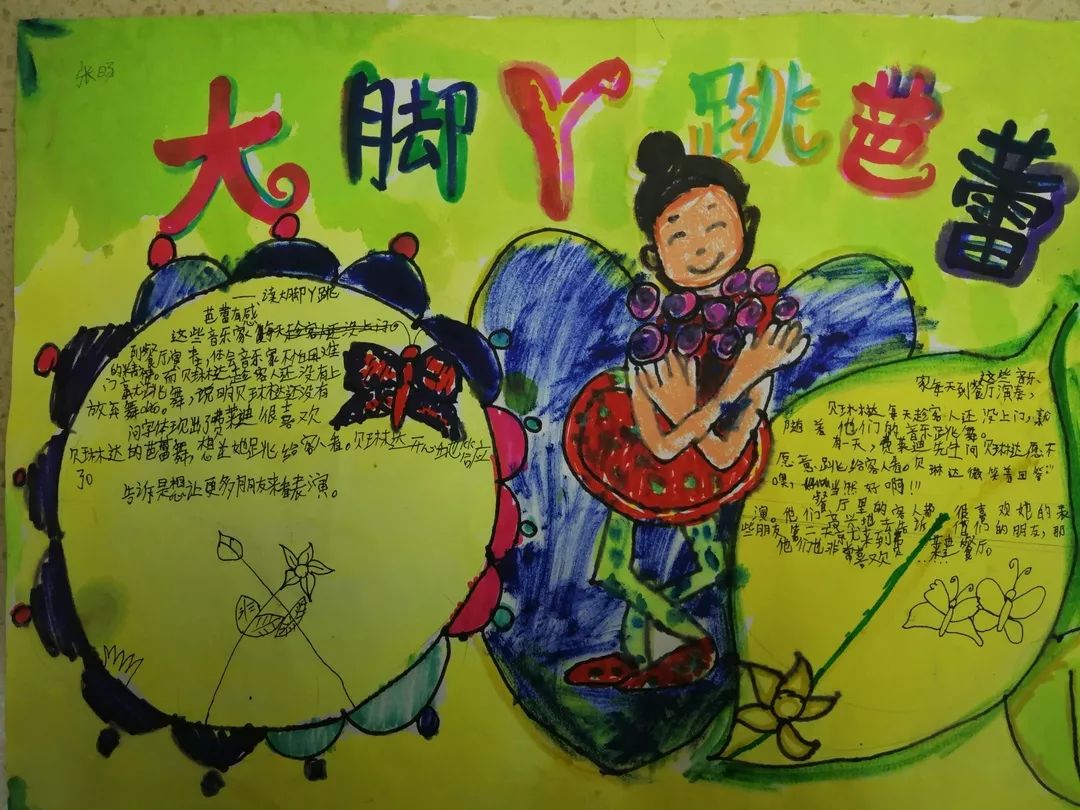 张
大脚丫跳芭蕾
——读大脚丫跳
芭蕾有感
这些音乐家每天趁客人还没上门
到餐厅演奏，体会音乐家不怕困难
的精神。而贝琳达趁客人还没有上
门就跳舞，说明贝琳达还没有
放弃舞。
问字体现出了费莱迪很喜欢
贝琳达的芭蕾舞，想让她跳给客人看。贝琳达开心地答应
了
告诉是想让更多朋友来看表演。
这些音乐
家每天到餐厅演奏，
贝琳达每天趁客人还没上门，就
随着他们的音乐跳舞。
有一天，费莱迪先生问贝琳达愿不
愿意跳给客人看。贝琳达微笑着回答：“
噢，当然好啊!!!
餐厅里的客人都很喜欢她的表
演。他们高兴地去告诉他们的朋友，那
些朋友第二天
他们也非常喜欢